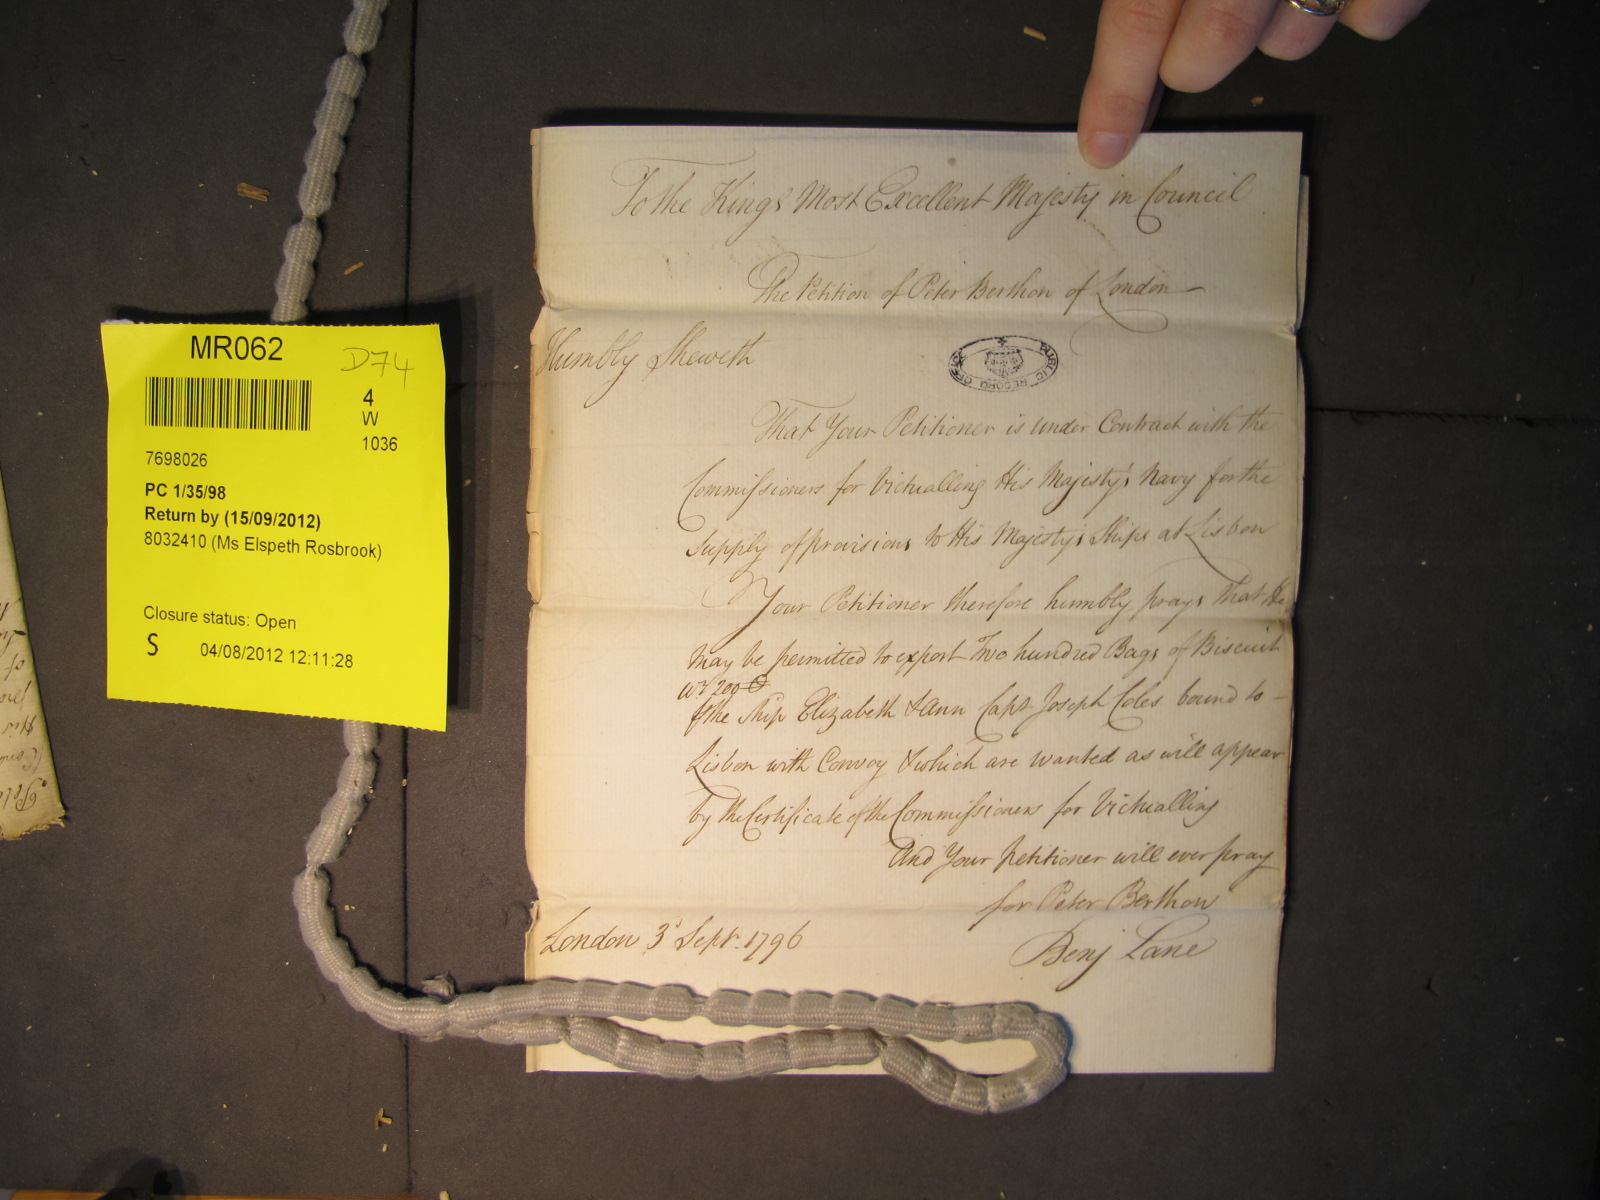 MR062
D74
4
W
1036
7698026
PC 1/35/98
Return by (15/09/2012)
8032410 (Ms Elspeth Rosbrook)
Closure status: Open
S 04/08/2012 12:11:28
To the Kings Most Excellent Majesty in Council
The Petition of Peter Berthon of London
Humbly Sheweth
PUBLIC RECORD OFFICE
That Your Petitioner is under Contract with the
Commissioners for Victualling His Majesty's Navy for the
supply of provisions to His Majesty's Ships at Lisbon
Your Petitioner therefore humbly prays That He
may be permitted to export Two hundred Bags of Biscuit
wt 200 C
the ship Elizabeth & Ann Capt Joseph Coles bound to
Lisbon with Convoy & which are wanted as will appear
by the Certificate of the Commissioners for Victualling
And Your petitioner will ever pray
for Peter Berthon
London 3d Septr. 1796
Benj Lane